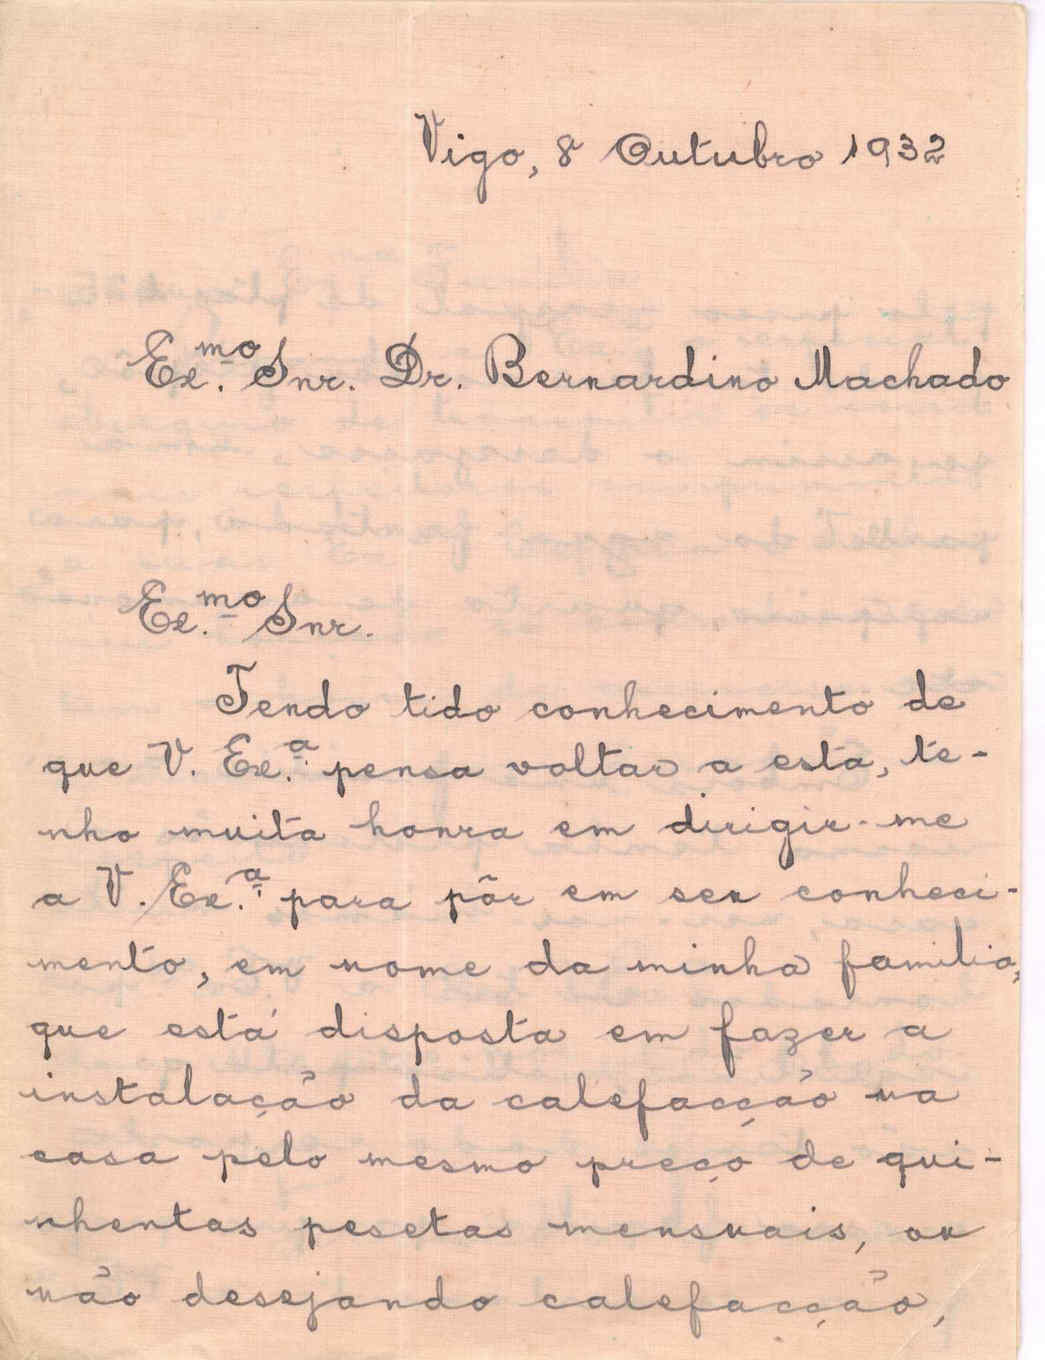 Vigo, 8 Outubro 1932
Ex.mo Snr. Dr. Bernardino Machado
Ex.mo Snr.
Tendo tido conhecimento de
que V. Ex.a pensa voltar a esta, te-
nho muita honra em dirigir-me
a V. Ex.a para pôr em seu conheci-
mento, em nome da minha familia,
que está disposta em fazer a
instalação da calefacção na
casa pelo mesmo preço de qui-
nhentas pesetas mensuais, ou
não desejando calefacção,